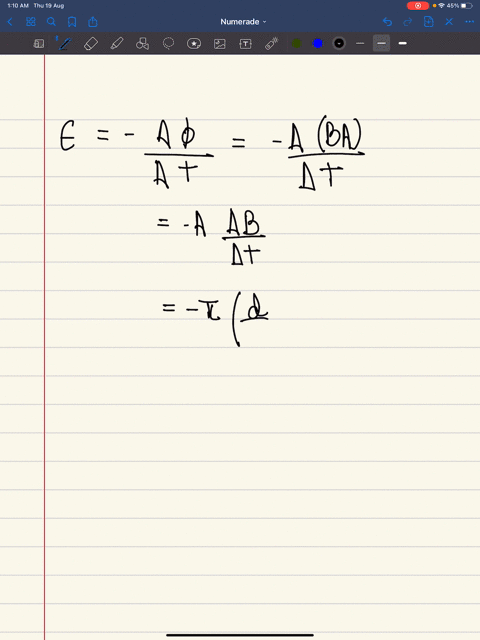 1:10 AM Thu 19 Aug 45%
Numerade
ε = - Δφ / Δt = - Δ (BA) / Δt
= - A ΔB / Δt
= - π ( d